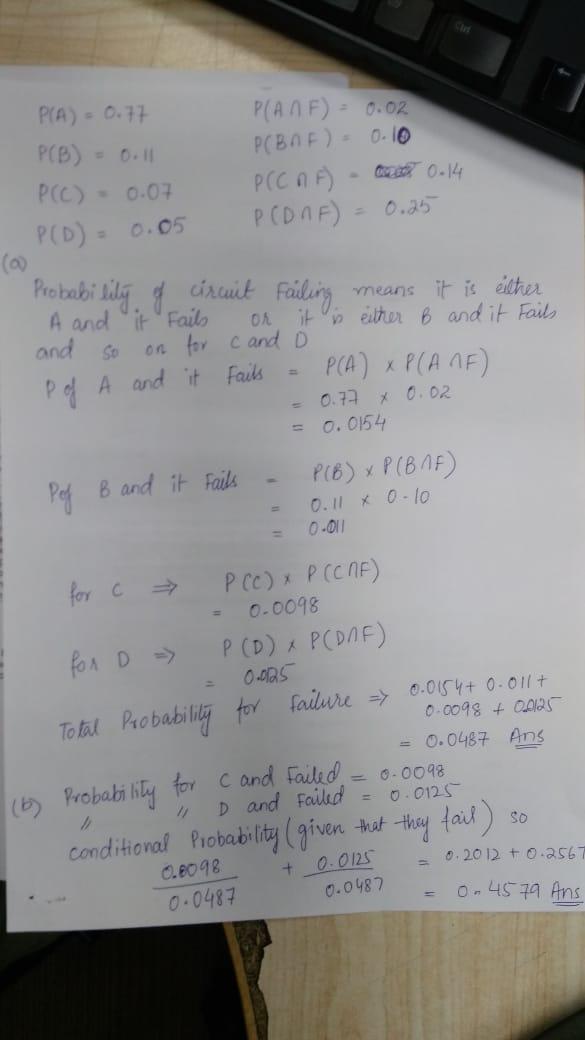 Ctrl
P(A) = 0.77 P(A∩F) = 0.02
P(B) = 0.11 P(B∩F) = 0.10
P(C) = 0.07 P(C∩F) = 0.14
P(D) = 0.05 P(D∩F) = 0.25
(a)
Probability of circuit Failing means it is either
A and it Fails or it is either B and it Fails
and so on for C and D
P of A and it Fails = P(A) x P(A∩F)
= 0.77 x 0.02
= 0.0154
P of B and it Fails = P(B) x P(B∩F)
= 0.11 x 0.10
= 0.011
for C ⇒ P(C) x P(C∩F)
= 0.0098
for D ⇒ P(D) x P(D∩F)
= 0.0125
Total Probability for failure ⇒ 0.0154 + 0.011 +
0.0098 + 0.0125
= 0.0487 Ans
(b) Probability for C and Failed = 0.0098
〃 〃 D and Failed = 0.0125
conditional Probability (given that they fail) so
0.0098/0.0487 + 0.0125/0.0487 = 0.2012 + 0.2567
= 0.4579 Ans